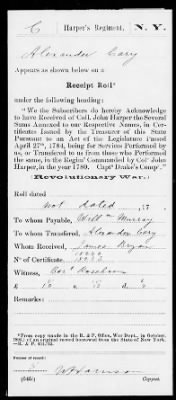 C Harper's Regiment, N. Y.
Alexander Cary
Appears as shown below on a
Receipt Roll*
under the following heading:
"We the Subscribers do hereby Acknowledge
to have Received of Coll. John Harper the Several
Sums Annexed to our Respective Names, in
Certificates Issued by the Treasurer of this State
Pursuant to an Act of the Legislature Passed
April 27th, 1784, being for Services Performed by
us, or Transferred to us from those who Performed
the same, in the Regim't Commanded by Col° John
Harper, in the year 1780. Capt Drake's Comp'y."
(Revolutionary War.)
Roll dated
not dated, 17 .
To whom Payable, Will m Murray
To whom Transferred, Alexander Cary
Whom Received, James Bryan
N° of Certificate,
Witness,
£
Remarks:
*From copy made in the R. & P. Office, War Dep't., in October,
of an original record borrowed from the State of New York.
—R. & P.
(545c) Copyist.